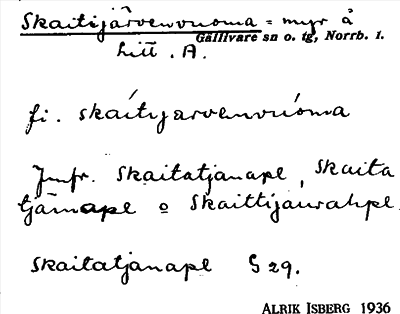 Skaitijärvenvuoma = myr å
Gällivare sn o. tg, Norrb. l.
litt. A.
fi. skaitijärvenvuoma
Jmfr. Skaitatjanape, Skaita
tjänape o Skaittijaurahpe.
Skaitatjanape G 29.
ALRIK ISBERG 1936